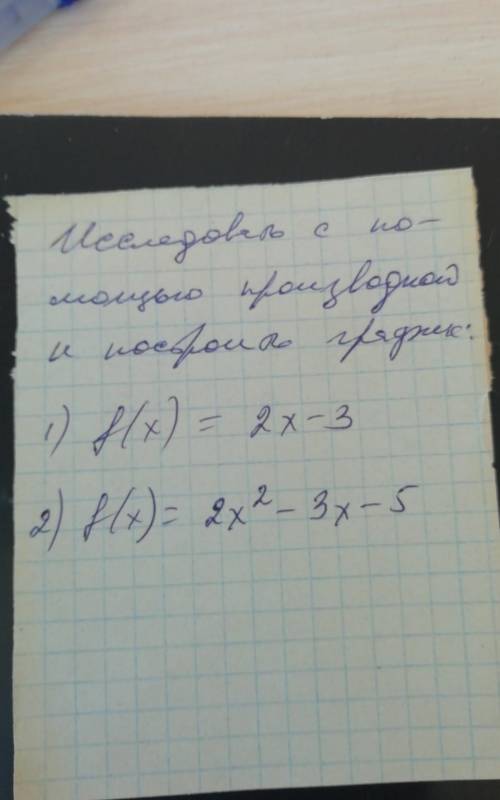 Исследовать с по-
мощью производной
и построить график:
1) f(x) = 2x-3
2) f(x) = 2x² - 3x - 5